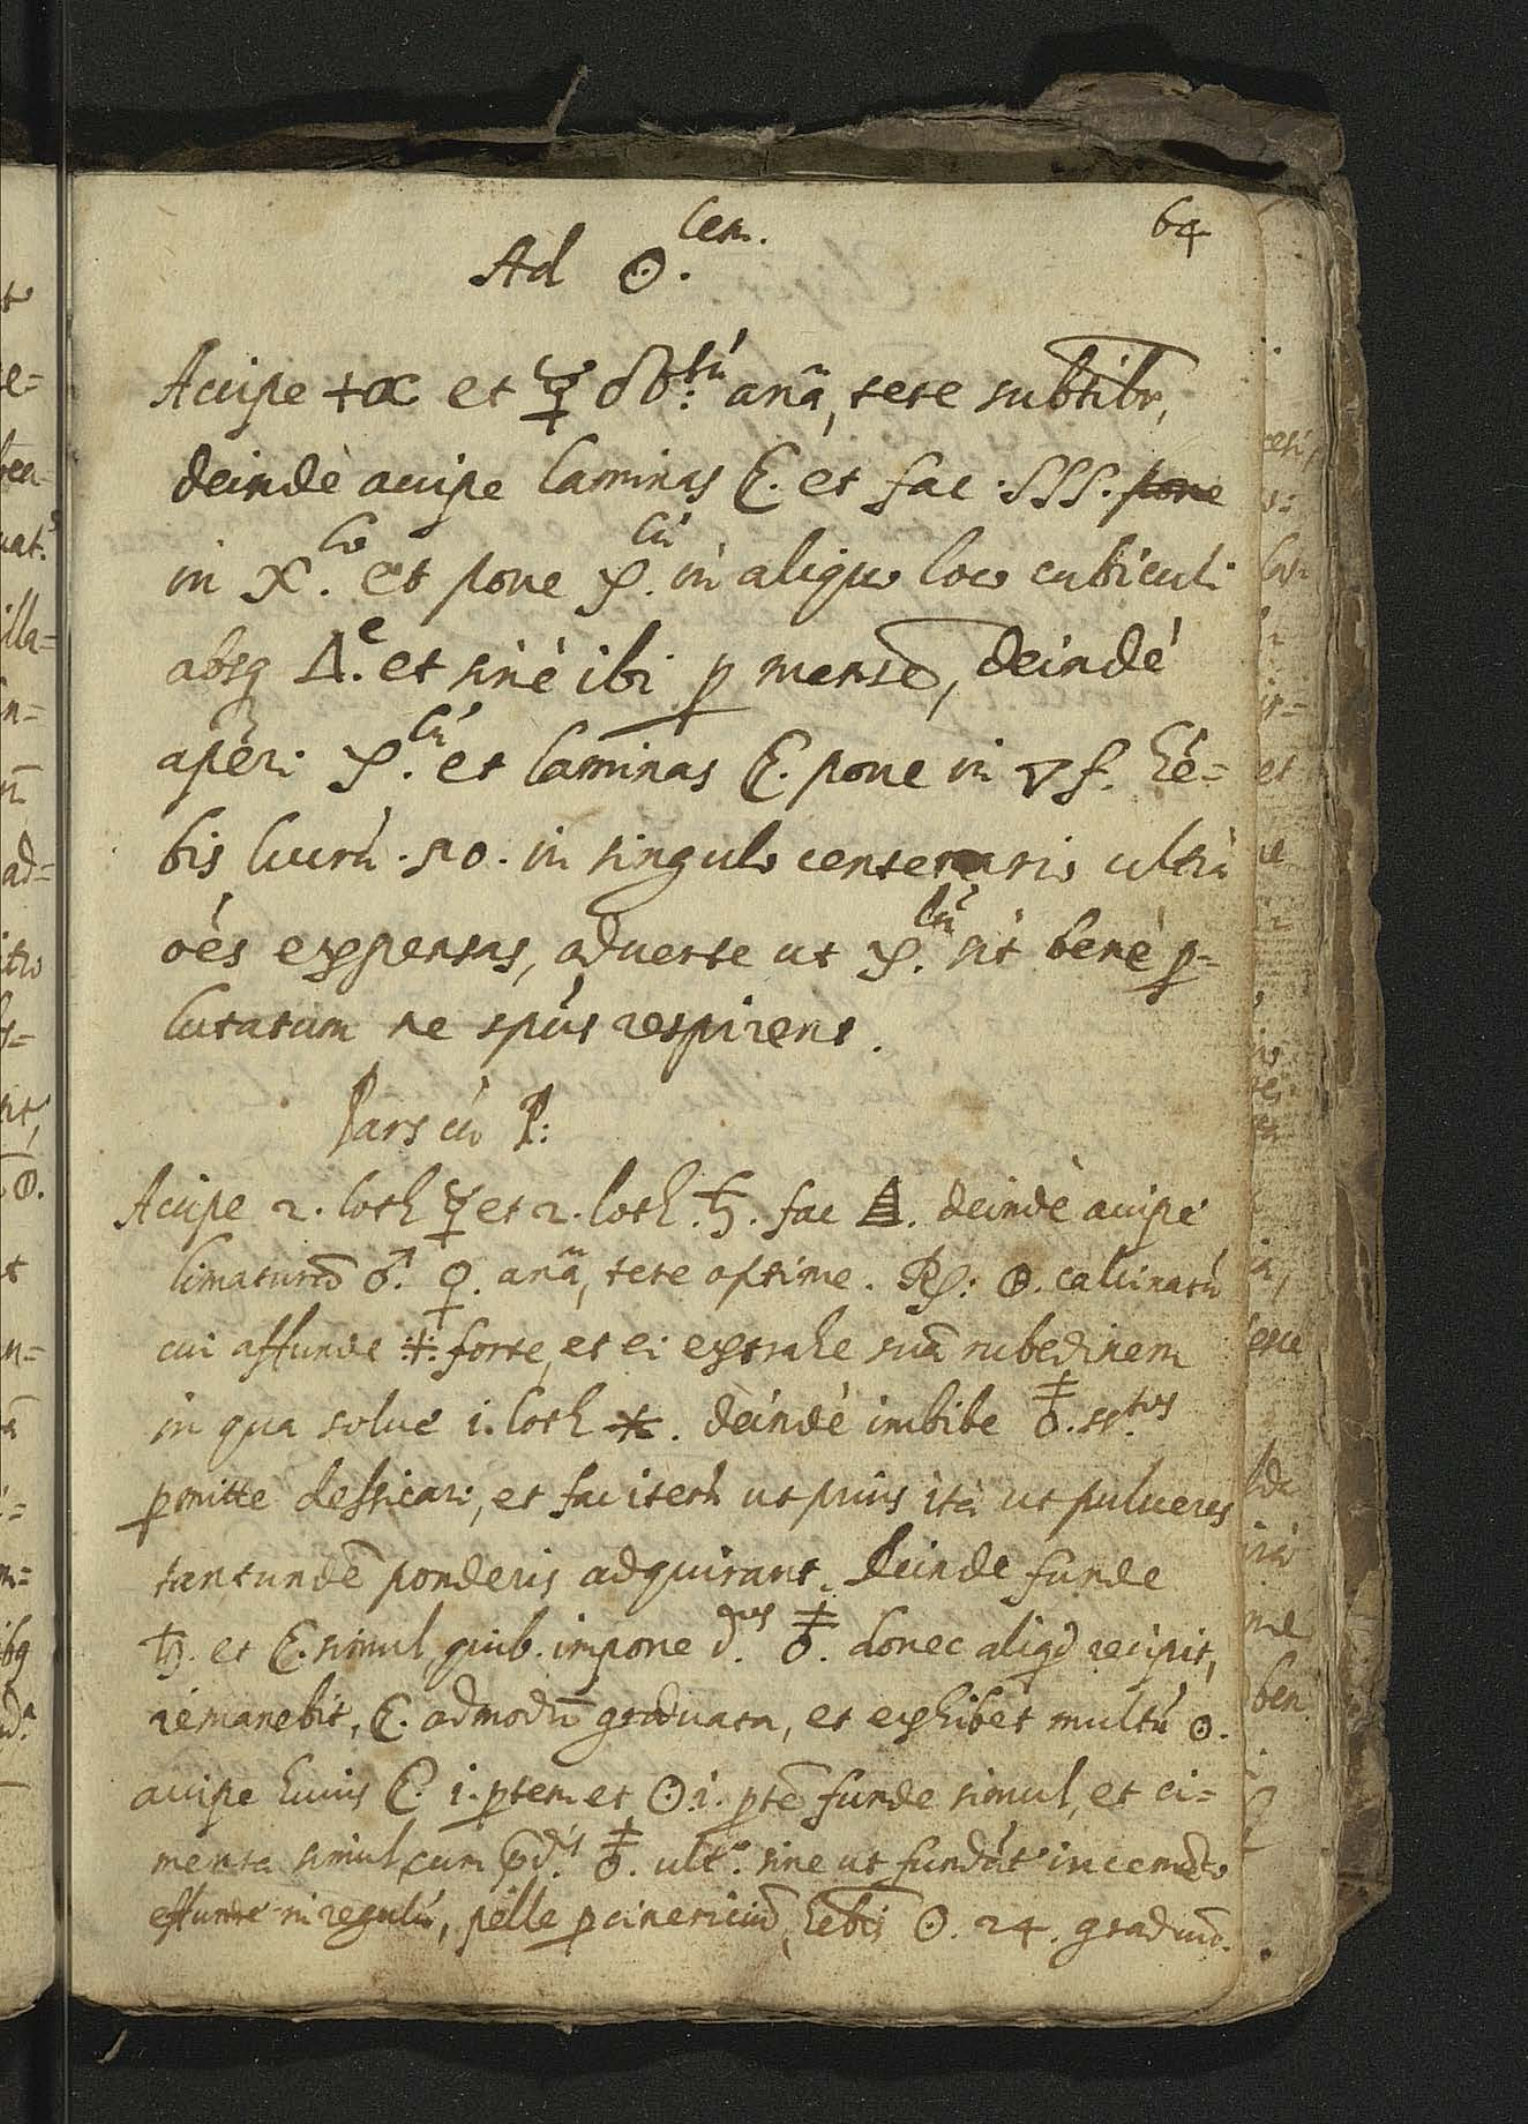 64
Ad ☉.lem.
Accipe + et ☿ anã, tere subtilr,
deindè accipe laminas ☾. et fac SSS. pone
in lo et pone lũ in aliquo loco cubiculi
absq △.e et sinè ibi p mensẽ, deindé
aperi lũ et laminas ☾. pone in ▽f. hé=
bis lucrũ . 50 . in singulo centenario ultrà
oés expensas, adverte ut lũ sit benè p=
lutatum ne spũs respirent.
Pars cũ
Accipe 2. loth ☿ et 2. loth. ♄. fac deindè accipe
limaturã ♂. ♀. anã, tere optime. Rp: calcinatũ
cui affunde forte, et ei extrahe suã rubedinem
in qua solue 1. loth ✶. deindè imbibe
pmitte dessicari, et fac iterũ ut prius ità ut pulueres
tantundẽ ponderis adquirant. Deinde funde
♄. et ☾. simul, quib. impone donec aliqd recipit,
remanebit, ☾. admodũ graduata, et exhibet multũ ☉.
accipe huius ☾. 1. ptem et ☉. 1. ptẽ funde simul, et ci=
menta simul cum ult. sine ut fundat in cemẽto
effunde in regulũ, pelle p cinericiũ, hebis ☉. 24. graduũ.